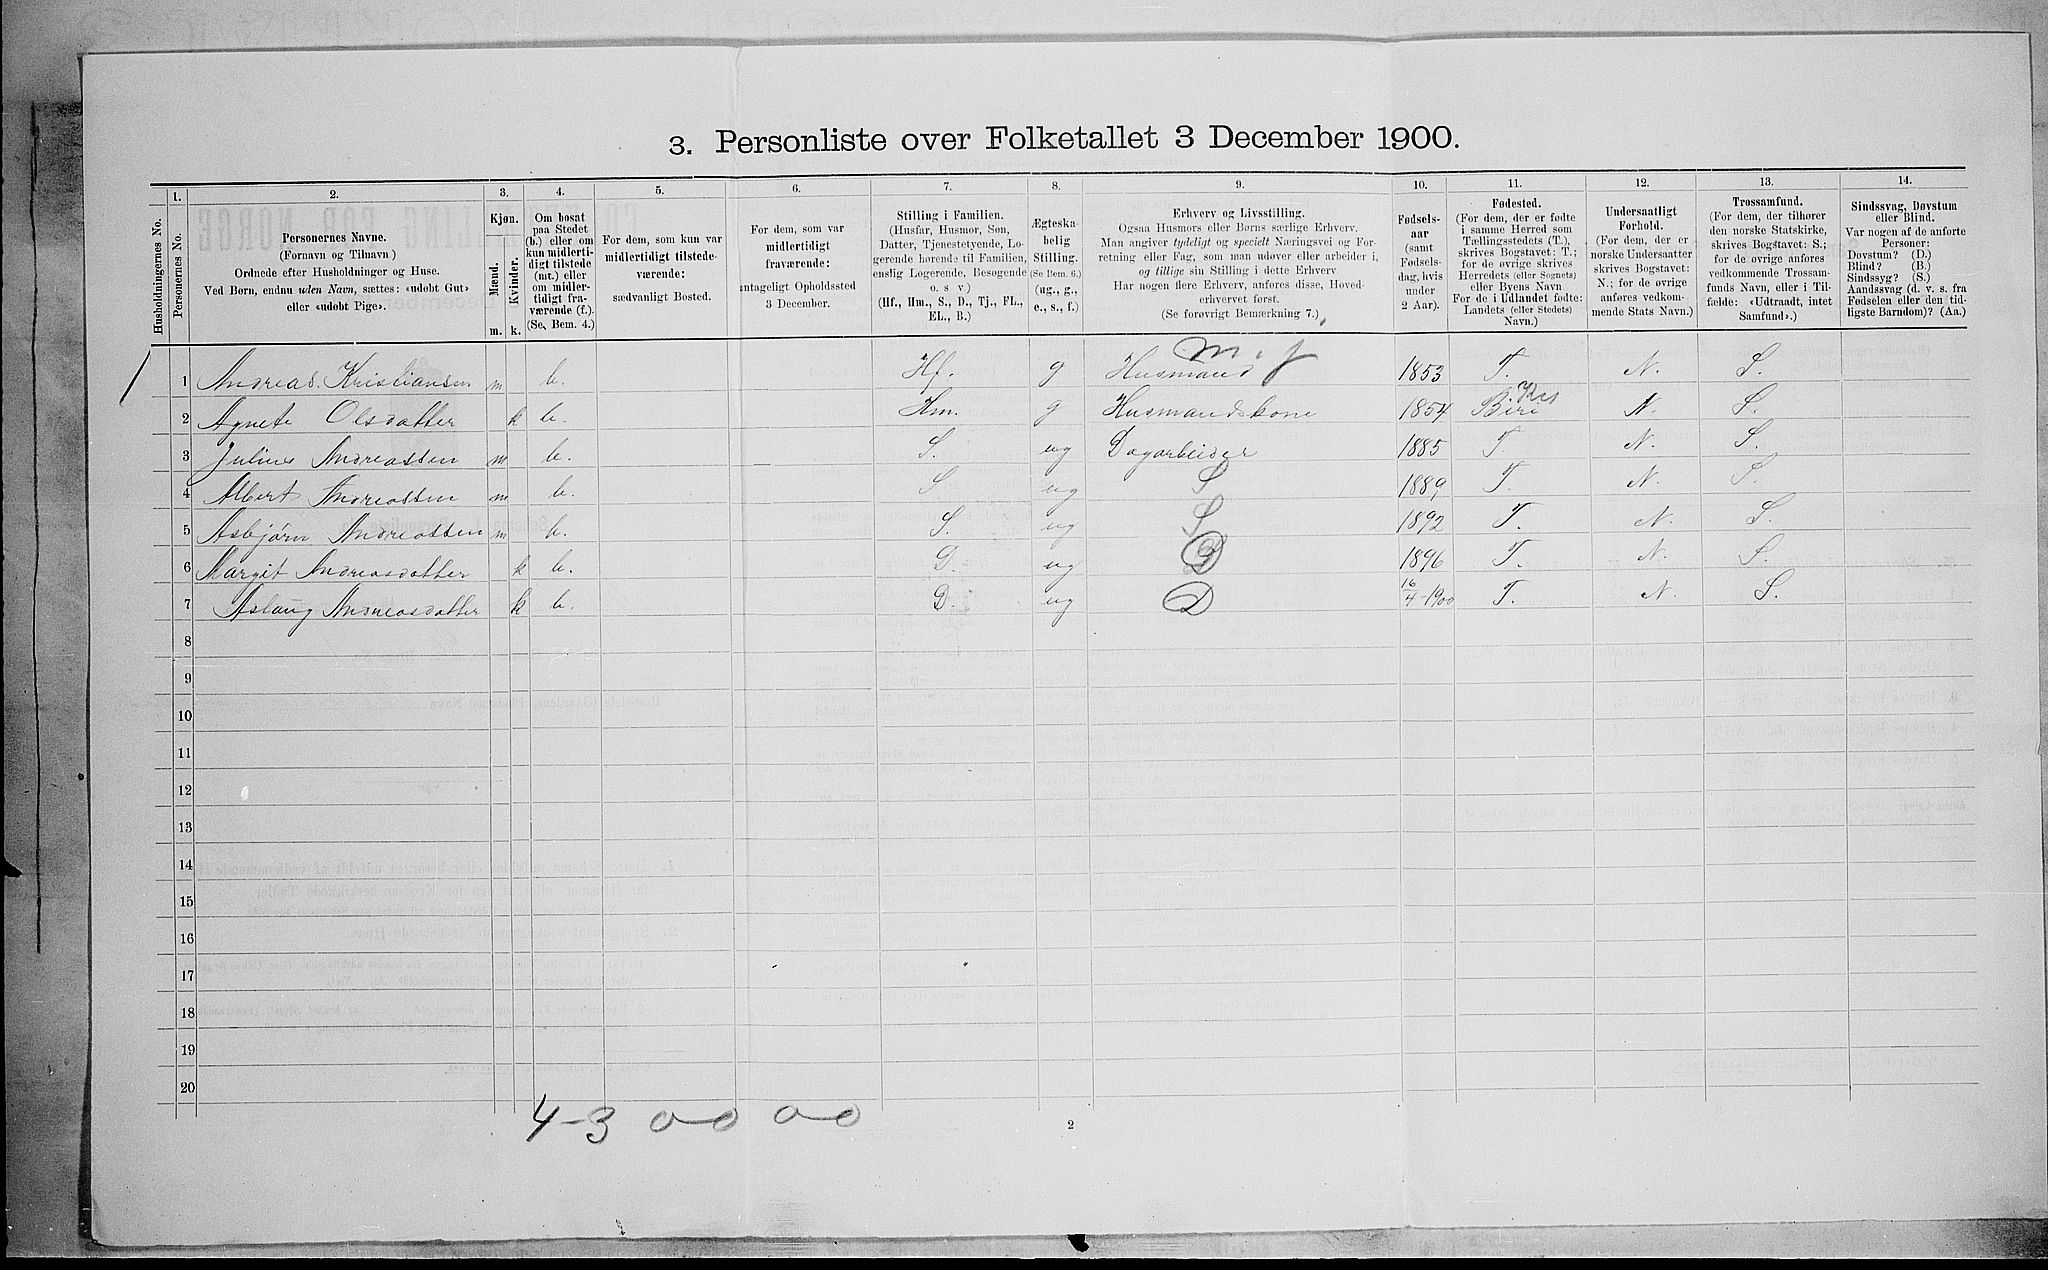 3. Personliste over Folketallet 3 December 1900.
1. 2. 3. 4. 5. 6. 7. 8. 9. 10. 11. 12. 13. 14.
Husholdningernes No.
Personernes No.
Personernes Navne.
(Fornavn og Tilnavn)
Ordnede efter Husholdninger og Huse.
Ved Børn, endnu uden Navn, sættes: «udøbt Gut»
eller «udøbt Pige».
Kjøn.
Mænd.
Kvinder.
m. k.
Om bosat
paa Stedet
(b.) eller om
kun midlerti-
digt tilstede
(mt.) eller
om midler-
tidigt fra-
værende (f.).
(Se, Bem. 4.)
For dem, som kun var
midlertidigt tilstede-
værende:
sædvanligt Bosted.
For dem, som var
midlertidigt
fraværende:
antageligt Opholdssted
3 December.
Stilling i Familien.
(Husfar, Husmor, Søn,
Datter, Tjenestetyende, Lo-
gerende hørende til Familien,
enslig Logerende, Besøgende
o. s v)
(Hf., Hm., S., D., Tj., FL.,
EL., B.)
Ægteska-
belig
Stilling.
(Se Bem. 6.)
(ug., g.,
e., s., f.)
Erhverv og Livsstilling.
Ogsaa Husmors eller Børns særlige Erhverv.
Man angiver tydeligt og specielt Næringsvei og For-
retning eller Fag, som man udøver eller arbeider i,
og tillige sin Stilling i dette Erhverv.
Har nogen flere Erhverv, anføres disse, Hoved-
erhvervet først.
(Se forøvrigt Bemærkning 7.)
Fødsels-
aar
(samt
Fødsels-
dag, hvis
under
2 Aar).
Fødested.
(For dem, der er fødte
i samme Herred som
Tællingsstedets (T.),
skrives Bogstavet: T.;
for de øvrige skrives
Herredets (eller Sognets)
eller Byens Navn
For de i Udlandet fødte:
Landets (eller Stedets)
Navn.)
Undersaatligt
Forhold.
(For dem, der er
norske Undersaatter
skrives Bogstavet:
N.; for de øvrige
anføres vedkom-
mende Stats Navn.)
Trossamfund.
(For dem, der tilhører
den norske Statskirke,
skrives Bogstavet: S.;
for de øvrige anføres
vedkommende Trossam-
funds Navn, eller i Til-
fælde: «Udtraadt, intet
Samfund».)
Sindssvag, Døvstum
eller Blind.
Var nogen af de anførte
Personer:
Døvstum? (D.)
Blind? (B.)
Sindssyg? (S.)
Aandssvag (d. v. s. fra
Fødselen eller den tid-
ligste Barndom)? (Aa.)
1 Andreas. Kristiansen m b. Hf. g Husmand m. j 1853 T. N. S.
2 Agnete Olsdatter k b. Hm. g Husmandskone 1854 Biri Kr N. S.
3 Julius Andreassen m b. S. ug Dagarbeider 1885 T. N. S.
4 Albert Andreassen m b. S ug S 1889 T. N. S.
5 Asbjørn Andreassen m b. S. ug S 1892 T. N. S.
6 Margit Andreasdatter k b. D. ug D 1896 T. N. S.
7 Aslaug Andreasdatter k b. D. ug D 16/4-1900 T. N. S.
8
9
10
11
12
13
14
15
16
17
18
19
20
4-3 0-0 0-0
2